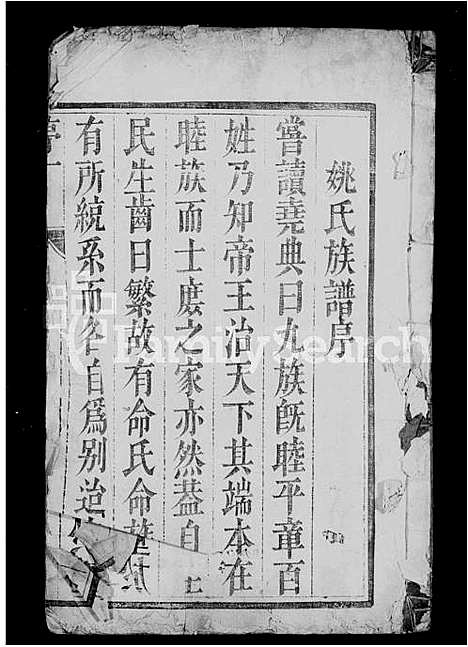 姚氏族譜序
嘗讀堯典曰九族旣睦平章百
姓乃知帝王治天下其端本在
睦族而士庶之家亦然蓋自
民生齒日繁故有命氏命族
有所統系而各自爲别迨
FamilySearch